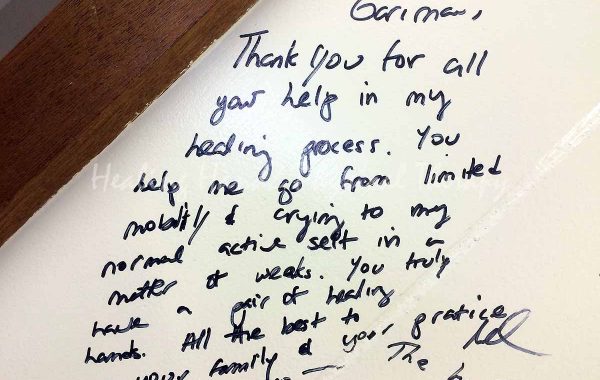 Gariman,
Thank you for all
your help in my
healing process. You
help me go from limited
mobility & crying to my
normal active self in a
matter of weeks. You truly
have a pair of healing
hands. All the best to
your family & your pratice
The